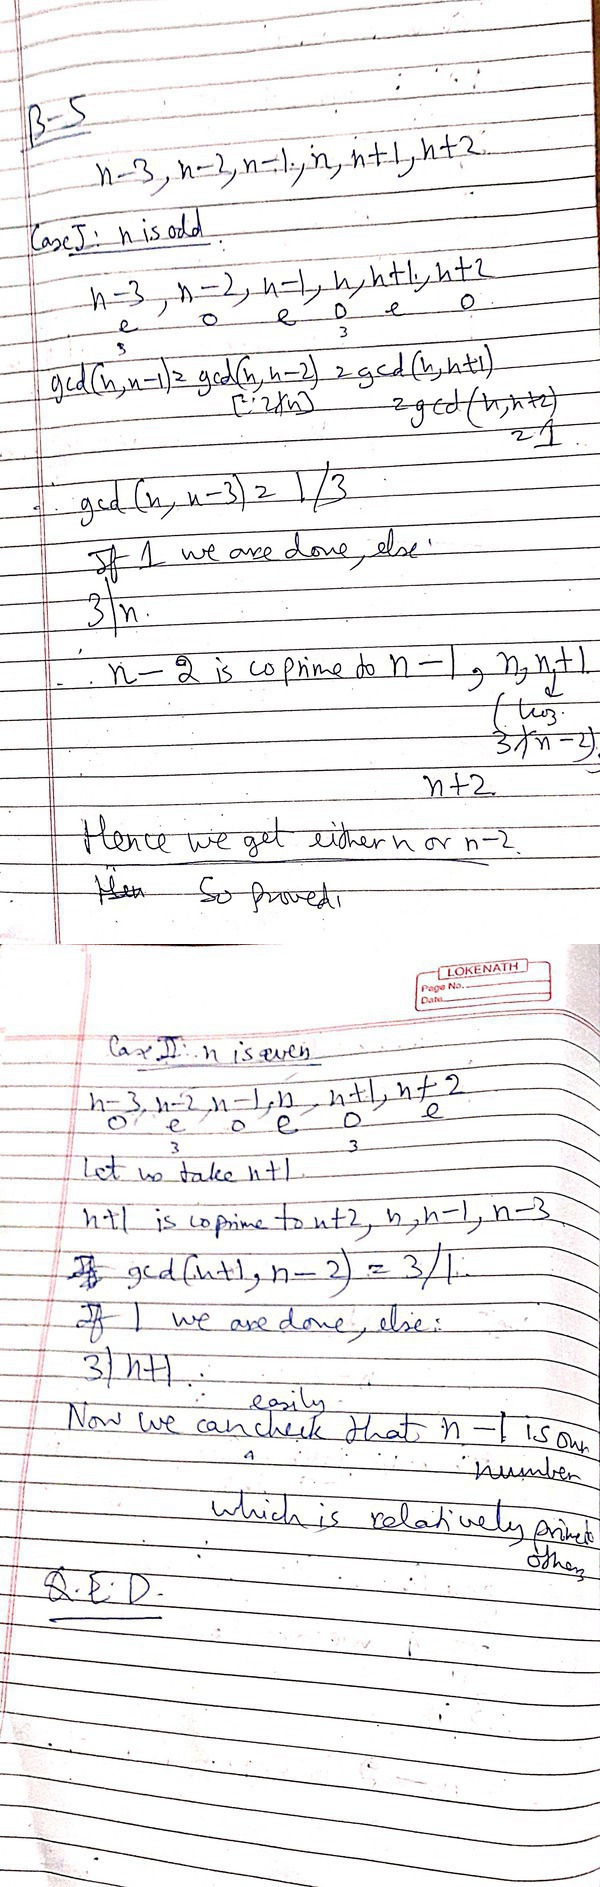 B-5
n-3, n-2, n-1, n, n+1, n+2
Case I: n is odd.
n-3, n-2, n-1, n, n+1, n+2
e o e o e o
3 3
gcd(n, n-1) = gcd(n, n-2) = gcd(n, n+1)
[∵ 2∤n] = gcd(n, n+2)
= 1
∴ gcd(n, n-3) = 1/3
If 1 we are done, else:
3|n.
∴ n-2 is coprime to n-1, n, n+1
3∤(n-2)
n+2
Hence we get either n or n-2.
So proved.
LOKENATH
Page No.
Date
Case II: n is even
n-3, n-2, n-1, n, n+1, n+2
o e o e o e
3 3
Let us take n+1
n+1 is coprime to n+2, n, n-1, n-3
gcd(n+1, n-2) = 3/1.
If 1 we are done, else:
3|n+1
Now we can easily check that n-1 is our
number
which is relatively prime to
others
Q.E.D.